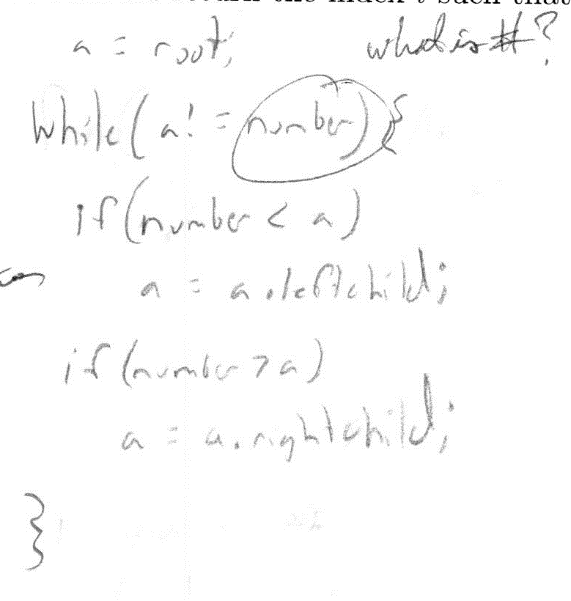 return the index i such that
a = root; what is #?
while(a! = number){
if(number < a)
a = a.leftchild;
if(number > a)
a = a.rightchild;
}